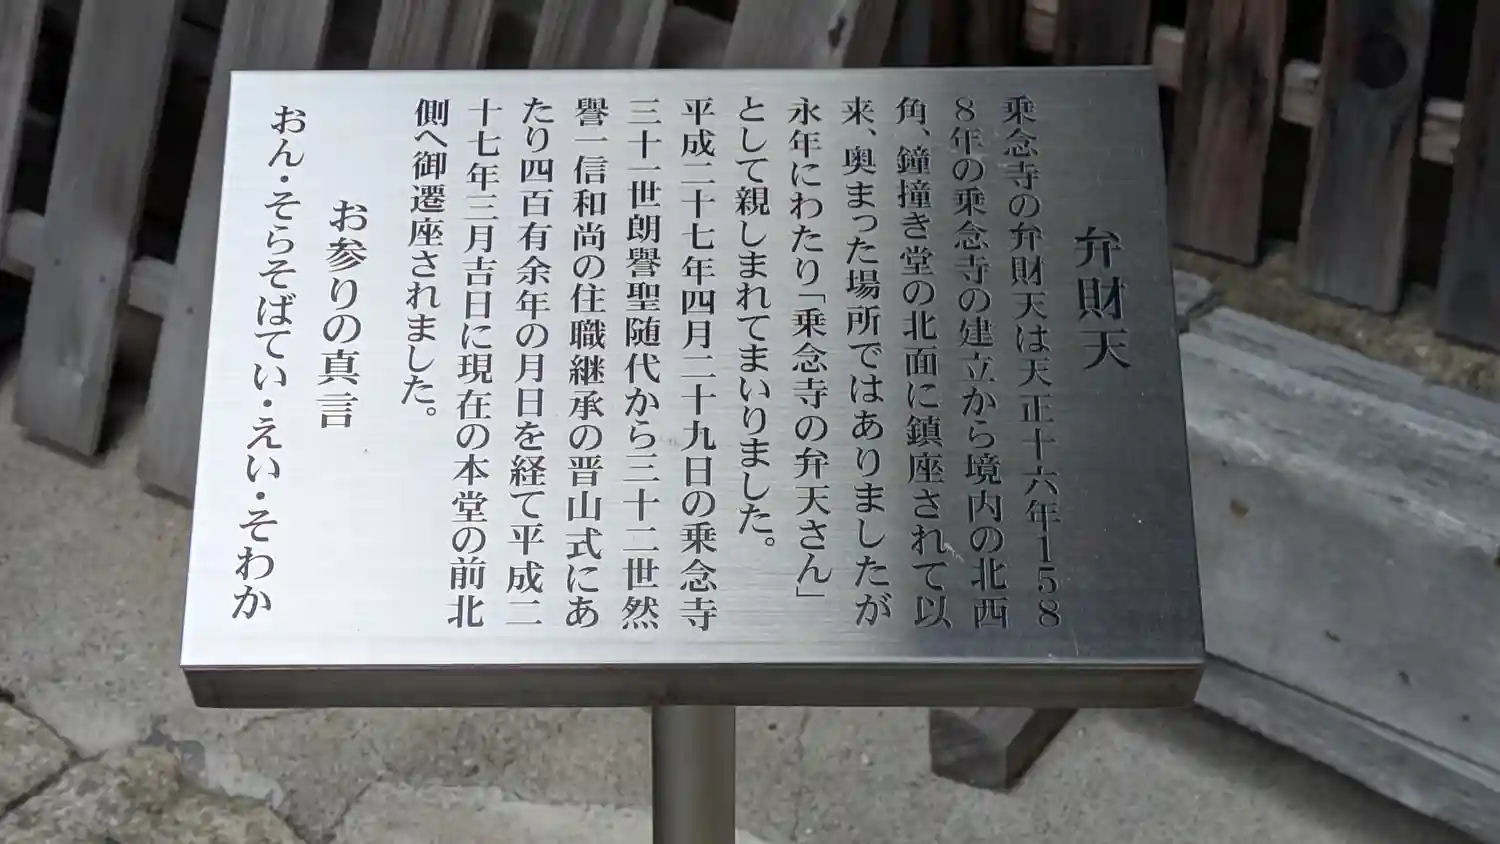 弁財天
乗念寺の弁財天は天正十六年158
8年の乗念寺の建立から境内の北西
角、鐘撞き堂の北面に鎮座されて以
来、奥まった場所ではありましたが
永年にわたり「乗念寺の弁天さん」
として親しまれてまいりました。
平成二十七年四月二十九日の乗念寺
三十一世朗譽聖随代から三十二世然
譽一信和尚の住職継承の晋山式にあ
たり四百有余年の月日を経て平成二
十七年三月吉日に現在の本堂の前北
側へ御遷座されました。
お参りの真言
おん・そらそばてい・えい・そわか